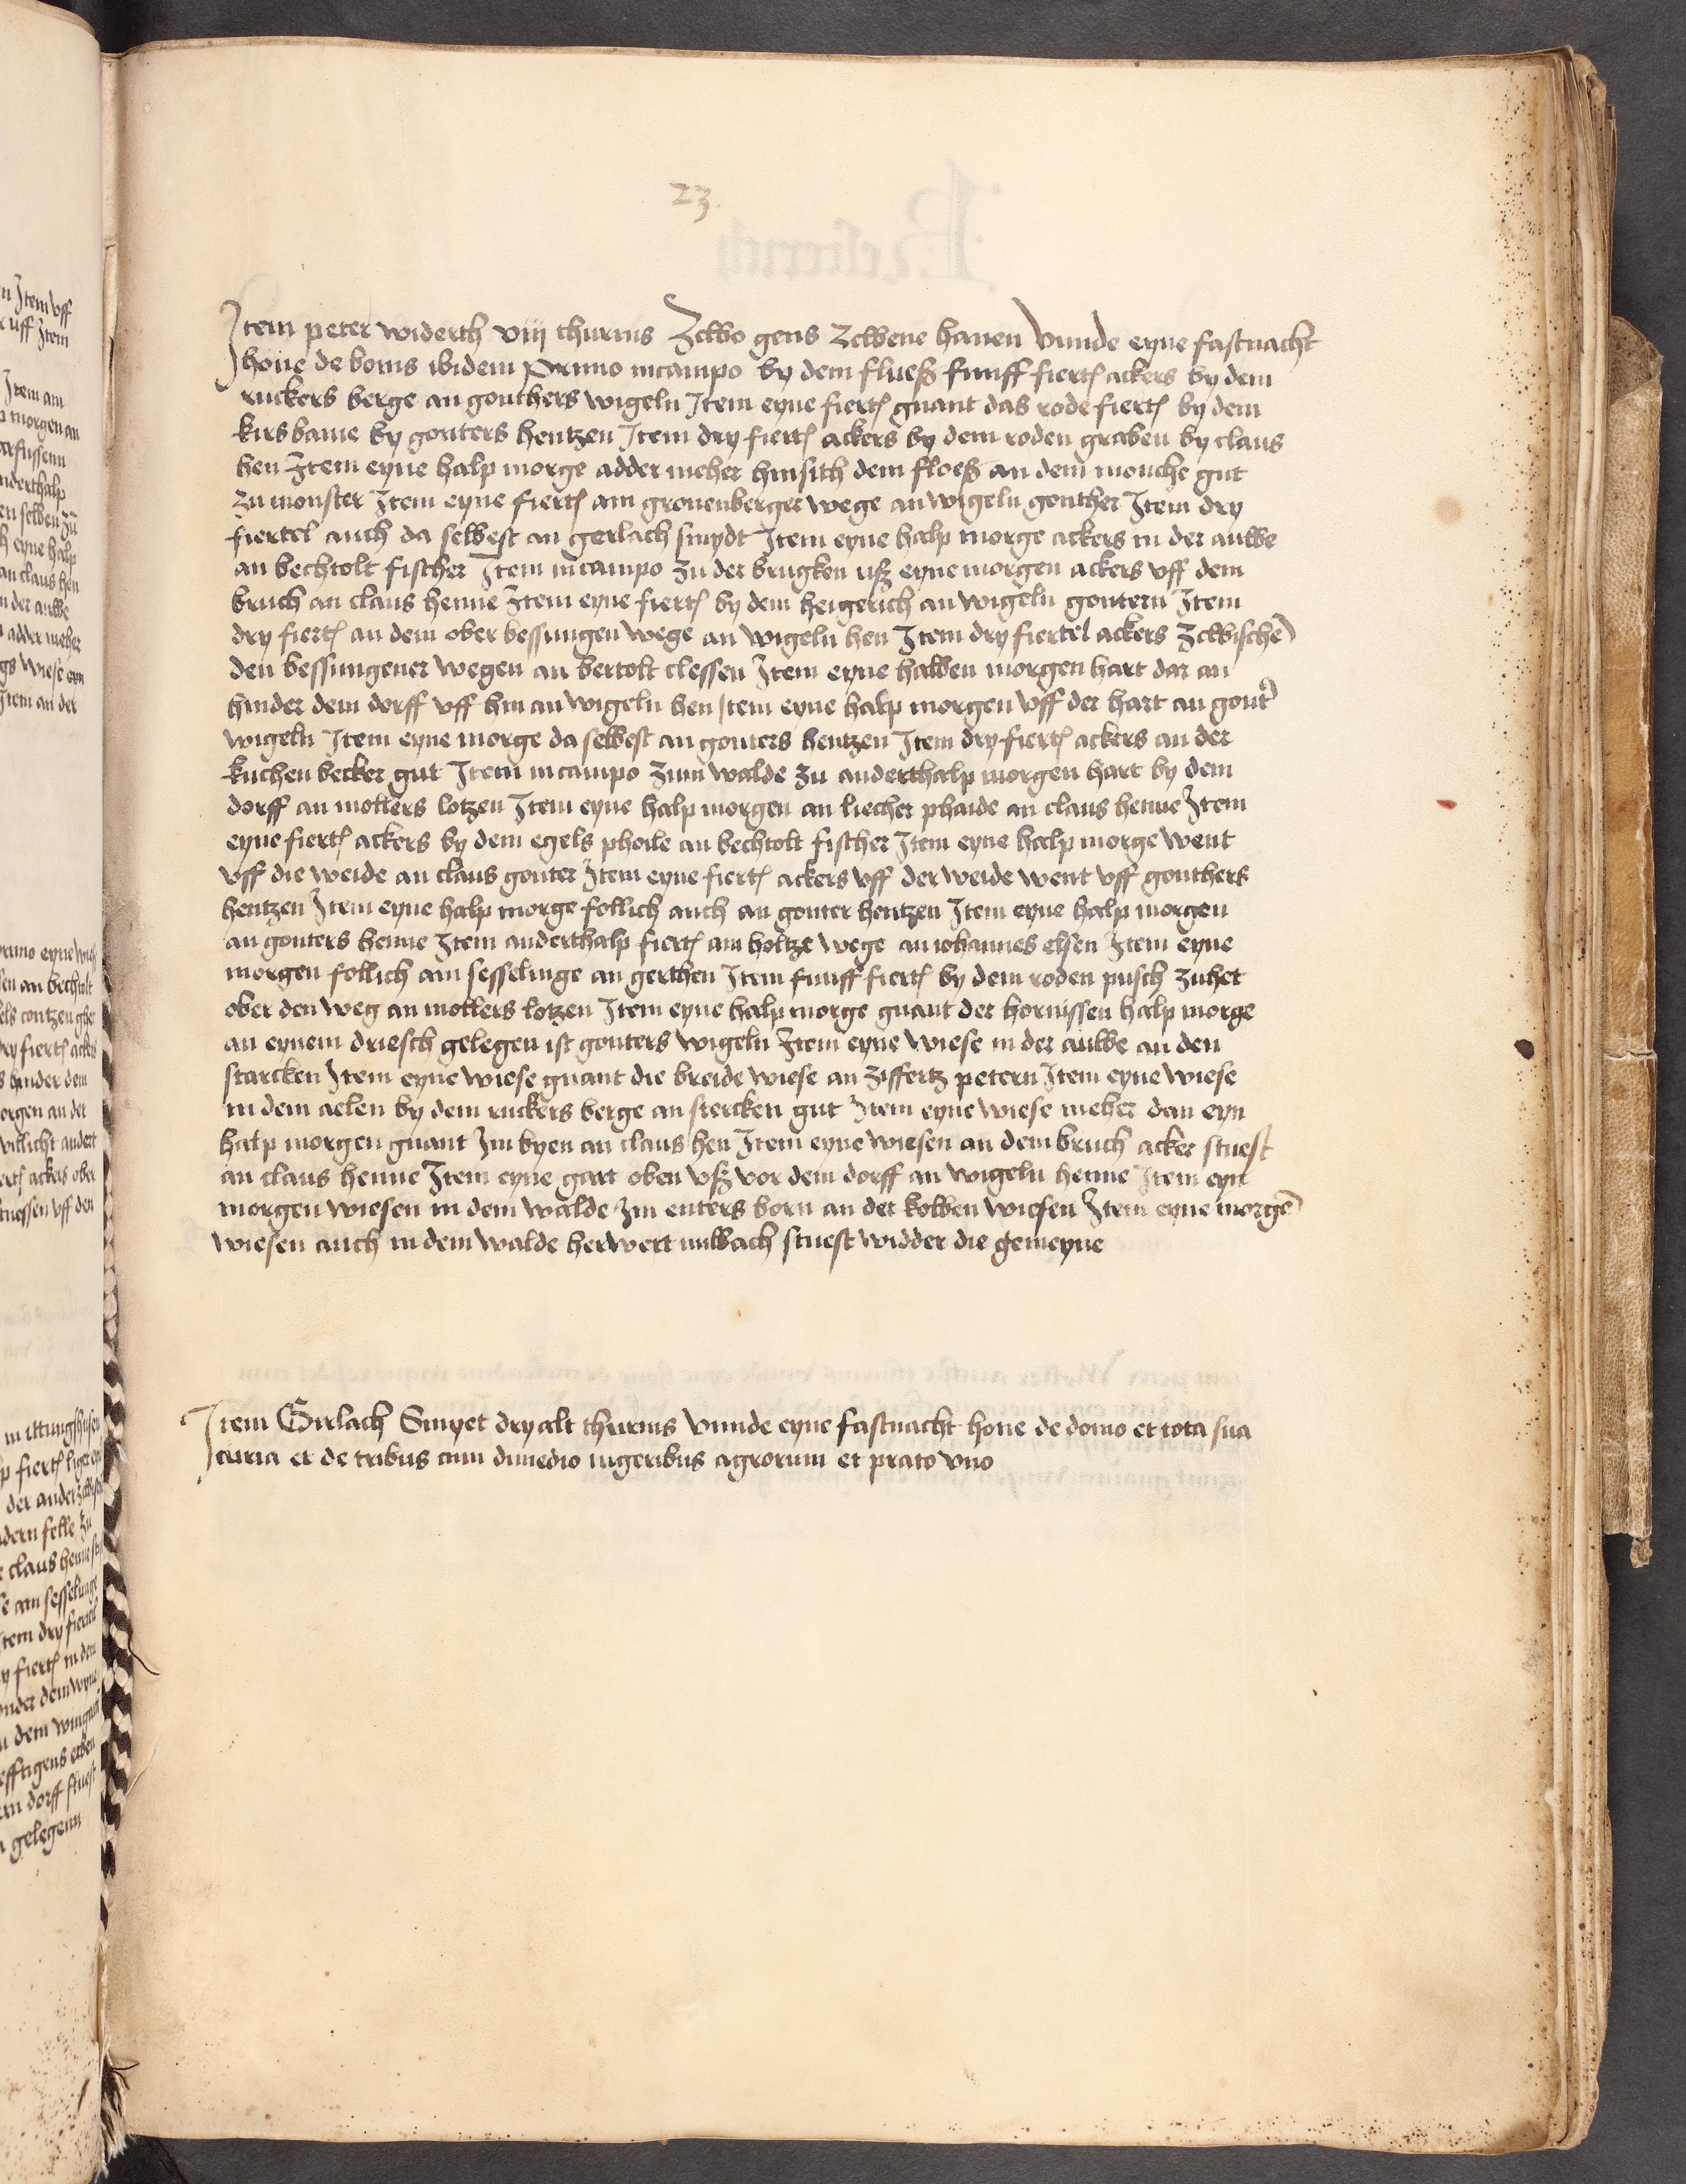 23
Item peter widerth viij thurnis Zcwo gens Zcwene hanen Vnnde eyne fastnacht
hone de bonis ibidem Primo in campo by dem flueß funff fiertl ackers by dem
ruckers berge an gonthers wigeln Item eyne fiertl gnant das rode fiertl by dem
kirsbame by gonters hentzen Item dry fiertl ackers by dem roden graben by claus
hen Item eyne halp morge adder meher hinsith dem floeß an dem monche gut
zu monster Item eyne fiertl am gronenberger wege an wigeln gonther Item dry
fiertel auch da selbest an gerlach smydt Item eyne halp morge ackers in der auwe
an bechtolt fischer Item in campo zu der brugken uß eyne morgen ackers vff dem
bruch an claus henne Item eyne fiertl by dem heigerich an wigeln gontern Item
dry fiertl an dem ober bessingen wege an wigeln hen Item dry fiertel ackers zcwischē
den bessingener wegen an bertolt clessen Item eyne halben morgen hart dar an
hinder dem dorff vff hin an wigeln hen Item eyne halp morgen vff der hart an gont
wigeln Item eyne morge da selbest an gonters hentzen Item dry fiertl ackers an der
kuchen becker gut Item in campo zum walde zu anderthalp morgen hart by dem
dorff an mollers lotzen Item eyne halp morgen an liecher phaide an claus henne Item
eyne fiertl ackers by dem egels phoile an bechtolt fischer Item eyne halp morge went
vff die weide an claus gonter Item eyne fiertl ackers vff der weide went vff gonthers
hentzen Item eyne halp morge follich auch an gonter hentzen Item eyne halp morgen
an gonters henne Item anderthalp fiertl am holtze wege an iohannes elsen Item eyne
morgen follich am sesselinge an gerthen Item funff fiertl by dem roden pusch zuhet
ober den weg an mollers lotzen Item eyne halp morge gnant der hornissen halp morge
an eynem driesch gelegen ist gonters wigeln Item eyne wiese in der auwe an den
starcken Item eyne wiese gnant die breide wiese an ziffertz petern Item eyne wiese
in dem aelen by dem ruckers berge an stercken gut Item eyne wiese meher dan eyn
halp morgen gnant Im byen an claus hen Item eyne wiesen an dem bruch acker stuest
an claus henne Item eyne gart oben vß vor dem dorff an wigeln henne Item eyn
morgen wiesen in dem walde Im enters born an der kolben wiesen Item eyne morgē
wiesen auch in dem walde herwert mlbach stuest widder die gemeyne
Item Girlach Smyet dry alt thurnis Vnnde eyne fastnacht hone de domo et tota sua
curia et de tribus cum dimedio iugeribus agrorum et prato vno